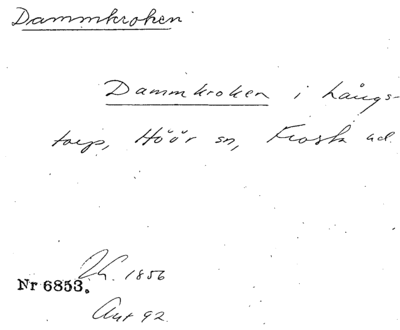 Dammkroken
Dammkroken i Långs-
torp, Höör sn, Frosta hd.
1856
Nr 6853.
Avt 92